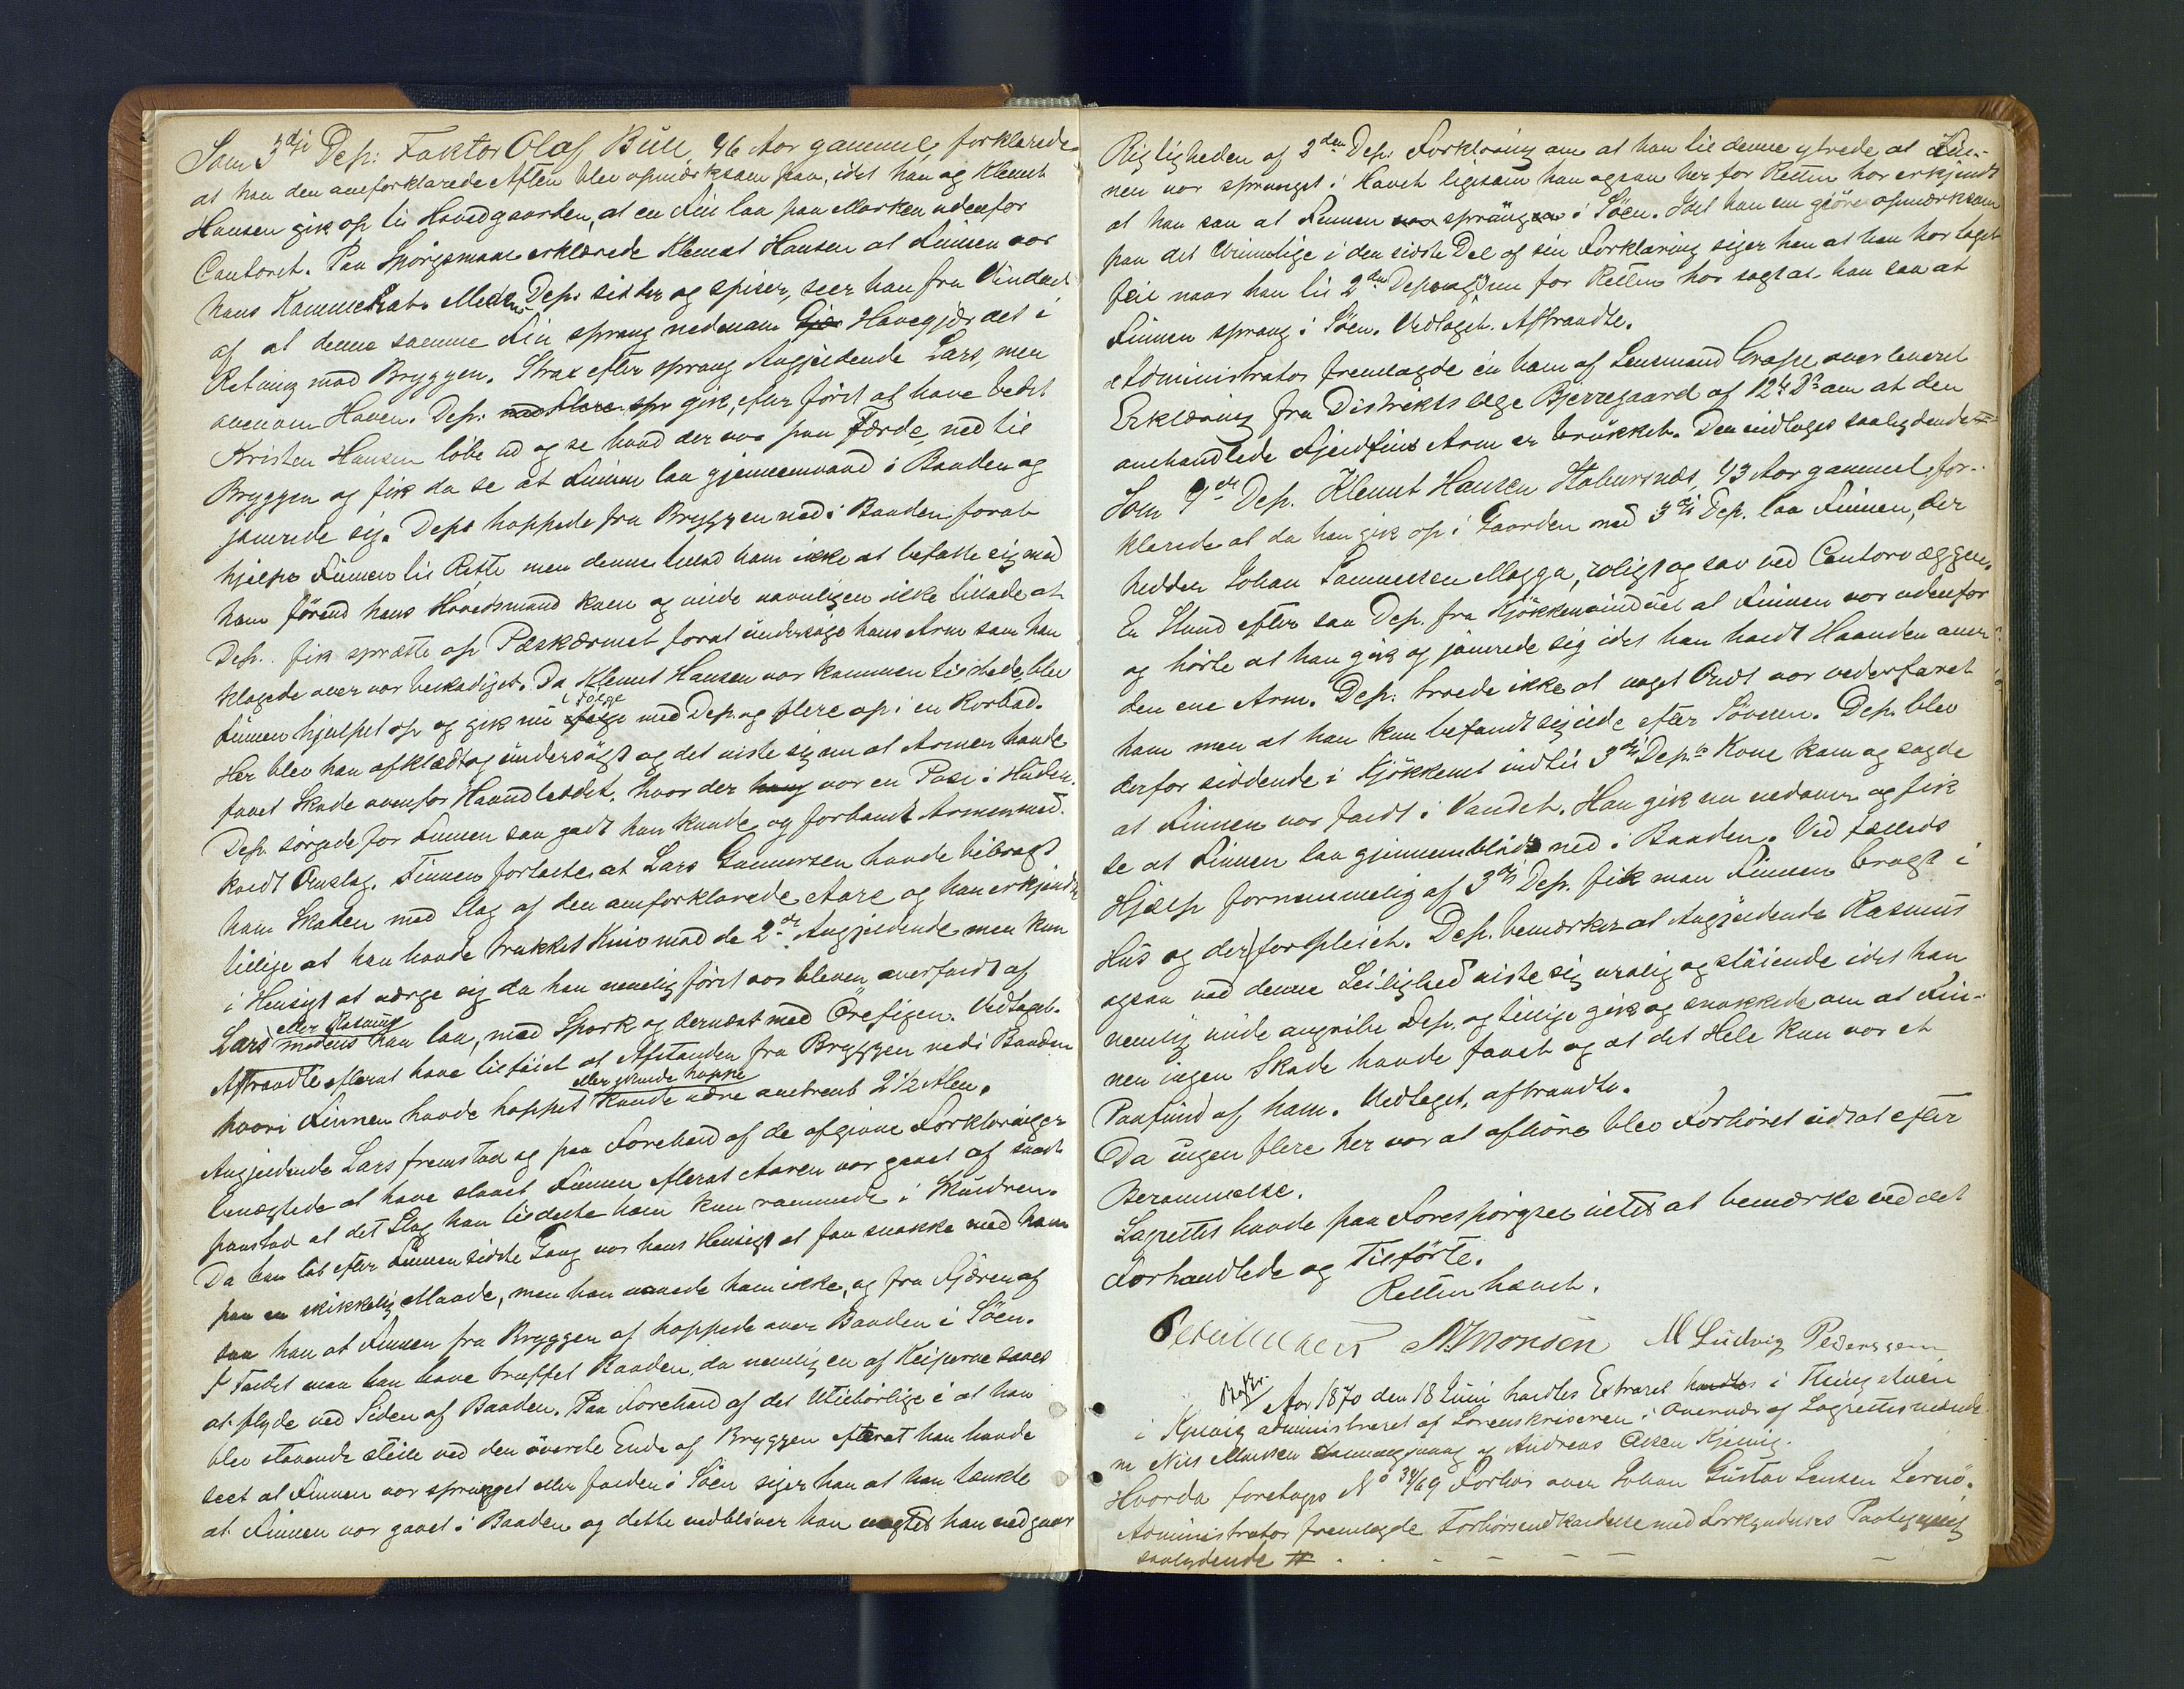 Som 3die Dep: Faktor Olaf Bull 46 Aar gammel, forklarede
at han den omforklarede Aften blev opmærksom paa, idet han og Klemet
Hansen gik op til Hovedgaarden, at en Fin laa paa Marken udenfor
Contoret. Paa Spörgsmaal erklærede Klemet Hansen at Finnen var
hans Kammerat. Medens Dep: sidder og spiser, seer han fra Vinduet
af at denne samme Fin sprang nedenom Havegjærdet i
Retning mod Bryggen. Strax efter sprang Angjeldende Lars, men
ovenom Haven. Dep: gik, efter först at have bedt
Kristen Hansen löbe ud og se hvad der var paa Færde, ned til
Bryggen og fik da se at Finnen laa gjennemvaad i Baaden og
jamrede sig. Deps hoppede fra Bryggen ned i Baaden forat
hjælpe Finnen til Rette men denne bad ham ikke at befatte sig med
ham förend hans Hovedsmand kom og vilde navnligen ikke tillade at
Dep: fik sprætte op Pæskærmet forat undersöge hans Arm som han
klagede over var beskadiget. Da Klemet Hansen var kommen tilstede, blev
Finnen hjulpet op og gik nu i Fölge med Dep. og flere op i en Korbod.
Her blev han afklædt og undersögt og det viste sig nu at Armen havde
faaet Skade ovenfor Haandleddet, hvor der hang var en Pose i Huden.
Dep. sörgede for Finnen saa godt han kunde og forbandt Armen med
koldt Omslag. Finnen fortalte, at Lars Gunnersen havde bibragt
ham Skaden med Slag af den omforklarede Aare og han erkjendte
tillige at han havde trukket Kniv mod de 2de Angjeldende men kun
i Hensigt at værge sig da han nemlig först var bleven overfaldt af
Lars eller Rasmus medens han laa, med Spark og dernæst med Örefigen. Vedtaget.
Aftraadte efterat have tilföiet at Afstanden fra Bryggen ned i Baaden
hvori Finnen havde hoppet eller skulde hoppe kunde være omtrent 2½ Alen.
Angjeldende Lars fremstod og paa Forehold af de afgivne Forklaringer
benægtede at have slaaet Finnen efterat Aaren var gaaet af samt
paastod at det Slag han tildelte ham kun rammede i Skuldren.
Da han löb efter Finnen sidste Gang var hans Hensigt at faa snakke med ham
paa en skikkelig Maade, men han naaede ham ikke, og fra Fjæren af
saa han at Finnen fra Bryggen af hoppede over Baaden i Söen.
I Faldet maa han have truffet Baaden, da nemlig en af Keiperne saaes
at flyde ved Siden af Baaden. Paa Forehold af det Utilbörlige i at han
blev staaende stille ved den överste Ende af Bryggen efterat han havde
seet at Finnen var sprunget eller falden i Söen siger han at han tænkte
at Finnen var gaaet i Baaden og dette vedbliver han uagtet han vedgaar
Rigtigheden af 3die Dep. Forklaring om at han til denne ytrede at Fin-
nen var sprunget i Havet ligesom han ogsaa her for Retten har erkjendt
at han saa at Finnen var sprungen i Söen. Idet han nu gjöres opmærksom
paa det Urimelige i den sidste Del af sin Forklaring siger han at han har taget
feil naar han til 2den Dep. og nu for Retten har sagt at han saa at
Finnen sprang i Söen. Vedtaget. Aftraadte.
Administrator fremlagde en ham af Lensmand Grape overleveret
Erklæring fra Distriktslæge Bjerregaard af 12te Ds om at den
omhandlede Fjeldfins Arm er brukket. Den indtages saalydende
Som 4de Dep. Klemet Hansen Stabursnæs, 43 Aar gammel, for-
klarede at da han gik op i Gaarden med 3die Dep. laa Finnen, der
hedder Johan Samuelsen Magga, roligt og sov ved Contorvæggen.
En Stund efter saa Dep. fra Kjökkenvinduet at Finnen var udenfor
og hörte at han gik og jamrede sig idet han holdt Haanden over
den ene Arm. Dep. troede ikke at noget Ondt var vederfaret
ham men at han kun befandt sig ilde efter Sövnen. Dep. blev
derfor siddende i Kjökkenet indtil 3die Deps Kone kom og sagde
at Finnen var faldt i Vandet. Han gik nu nedover og fik
se at Finnen laa gjennemblöd ned i Baaden. Ved fælleds
Hjælp fornemmelig af 3die Dep. fik man Finnen bragt i
Hus og der forpleiet. Dep. bemærker at Angjeldende Rasmus
ogsaa ved denne Leilighed viste sig urolig og stöiende idet han
nemlig vilde angribe Dep. og tillige gik og snakkede om at Fin-
nen ingen Skade havde faaet og at det Hele kun var et
Paafund af ham. Vedtaget, aftraadte.
Da ingen flere her var at afhöre blev Forhöret udsat efter
Berammelse.
Lagrettet havde paa Forespörgsel intet at bemærke ved det
Forhandlede og Tilförte.
Retten hævet.
N. Monsen M Ludvig Pederssen
Aar 1870 den 18 Juni holdtes Extraret holdtes i Thingstuen
i Kjelvig administreret af Sorenskriveren i Overvær af Lagrettesmænde-
ne Nils og Andreas Olsen Kjelvig.
Hvorda foretoges No 34/69 Forhör over Johan Gustav Jensen
Administrator fremlagde Forhörsudkaldelse med Forkyndelses Paategning
saalydende #